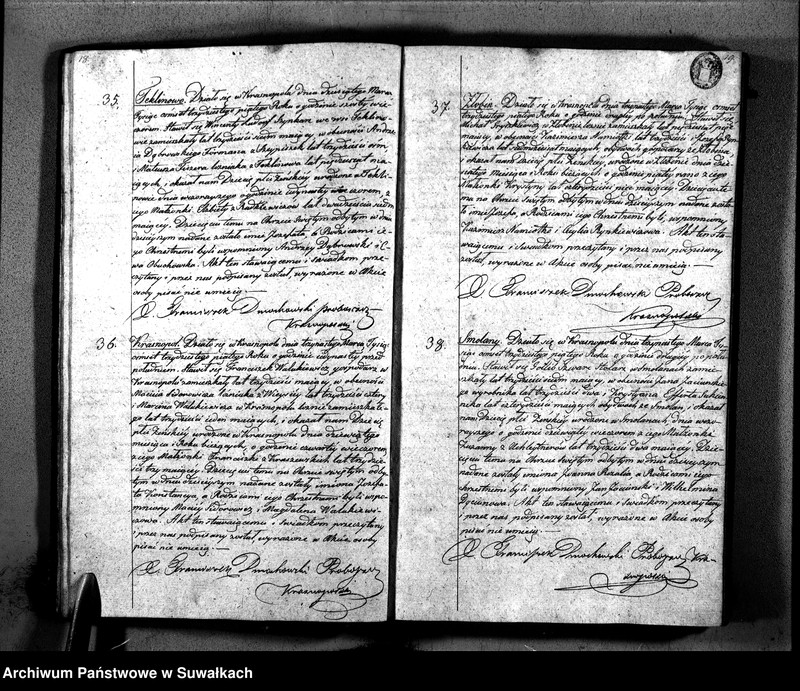 18.
35.
Teklinowo. Działo się w Krasnopolu dnia dziesiątego Marca
Tysiąc ośmset trzydziestego piątego Roku o godzinie szóstey wie-
czorem. Stawił się Wincenty we wsi Teklino-
wie zamieszkały lat trzydzieści siedm maiący, w obecności Andrze-
ia Dąbrowskiego lat trzydzieści ośm
i Mateusza w Teklinowie lat pięćdziesiąt ma-
iących, i okazał nam Dziecię płci żeńskiey urodzone w Tekli-
nowie dnia wczorayszego o godzinie iedynastey wieczorem, z
iego Małżonki Elżbiety z lat dwadzieścia siedm
maiącey. Dziecięciu temu na Chrzcie Świętym odbytym w dniu
dzisieyszym nadane zostało imie Józefata, a Rodzicami ie-
go Chrzestnemi byli wspomniony Andrzey Dąbrowski i E-
wa Obuchowska. Akt ten stawaiącemu i świadkom prze-
czytany i przez nas podpisany został, wyrażone w Akcie
osoby pisać nie umieią.
X. Franciszek Dmochowski Proboszcz
Krasnopolski
36.
Krasnopol. Działo się w Krasnopolu dnia trzynastego Marca Tysiąc
ośmset trzydziestego piątego Roku o godzinie iedynastey przed
południem. Stawił się Franciszek Walukiewicz gospodarz w
Krasnopolu zamieszkały lat trzydzieści maiący, w obecności
Macieia Sidorowicza lat trzydzieści cztery
i Marcina Walukiewicza w Krasnopolu zamieszkałe-
go lat trzydzieści ieden maiących, i okazał nam Dziecię
płci żeńskiey urodzone w Krasnopolu dnia dziewiątego
miesiąca i Roku bieżących, o godzinie czwartey wieczorem
z iego Małżonki Franciszki z Kraszewskich lat trzydzie-
ści trzy maiącey. Dziecięciu temu na Chrzcie świętym odby-
tym w dniu dzisieyszym nadane zostały imiona Józefa-
ta Konstancya, a Rodzicami iego Chrzestnemi byli wspo-
mniony Maciey Sidorowicz i Magdalina Walukiewi-
czowa. Akt ten stawaiącemu i świadkom przeczytany
i przez nas podpisany został, wyrażone w Akcie osoby
pisać nie umieią.
X. Franciszek Dmochowski Proboszcz
Krasnopolski
19.
37.
Żłobin. Działo się w Krasnopolu dnia trzynastego Marca Tysiąc ośmset
trzydziestego piątego Roku o godzinie po południu. Stawił się
Michał w Żłobinie zamieszkały lat pięć
maiący, w obecności Kazimierza lat trzydzieści i Józefa Ryn-
kiewicza lat maiących, obydwóch gospodarzy z Żłobina
i okazał nam Dziecię płci żeńskiey, urodzone w Żłobinie dnia dzie-
siątego miesiąca i Roku bieżących o godzinie piątey rano z iego
Małżonki Krystyny lat czterdzieści maiącey. Dziecięciu te-
mu na Chrzcie świętym odbytym w dniu dzisieyszym nadane zosta-
ło imie Józefa, a Rodzicami iego Chrzestnemi byli, wspomniony
Kazimierz i Cecylia Rynkiewiczowa. Akt ten sta-
waiącemu i świadkom przeczytany i przez nas podpisany
został, wyrażone w Akcie osoby pisać nie umieią.
X. Franciszek Dmochowski Proboszcz
Krasnopolski
38.
Smolany. Działo się w Krasnopolu dnia trzynastego Marca Ty-
siąc ośmset trzydziestego piątego Roku o godzinie drugiey po połu-
dniu. Stawił się Stolarz w Smolanach zamie-
szkały lat trzydzieści siedm maiący, w obecności Jana
go wyrobnika lat trzydzieści dwa i Krystyana
lat czterdzieści maiących obydwóch ze Smolan, i okazał
nam Dziecię płci żeńskiey urodzone w Smolanach, dnia wczo-
rayszego o godzinie dziewiątey wieczorem z iego Małżonki
Zuzanny z lat trzydzieści dwa maiącey. Dzie-
cięciu temu na Chrzcie świętym odbytym w dniu dzisieyszym
nadane zostały imiona Joanna Rozalia a Rodzicami iego
chrzestnemi byli wspomniony Jan i Wilhelmina
Akt ten stawaiącemu i świadkom przeczytany
i przez nas podpisany został, wyrażone w Akcie osoby
pisać nie umieią.
X. Franciszek Dmochowski Proboszcz Kra-
snopolski
Archiwum Państwowe w Suwałkach